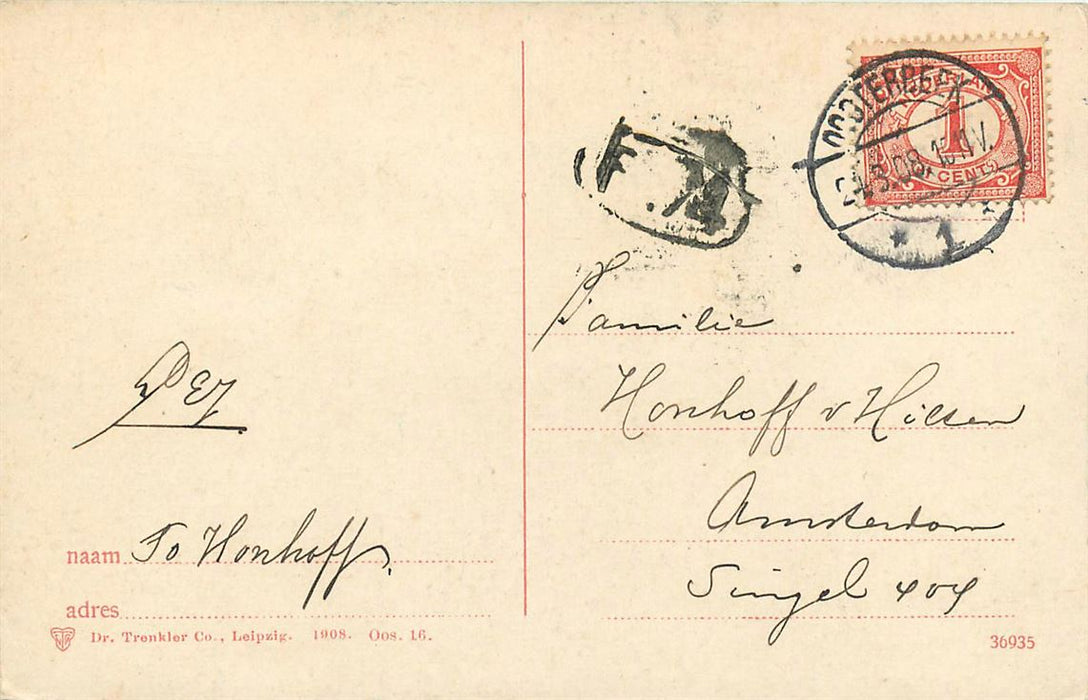 OOSTERBEEK
8.08. 10-11V.
* 1 *
1
CENT
F.K.
Familie
Honhoff v Hilsen
Amsterdam
Singel 404
naam To Honhoff.
adres
Dr. Trenkler Co., Leipzig. 1908. Oos. 16.
36935